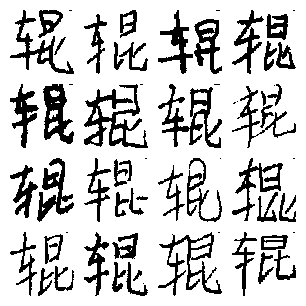 辊辊辊辊
辊辊辊辊
辊辊辊辊
辊辊辊辊